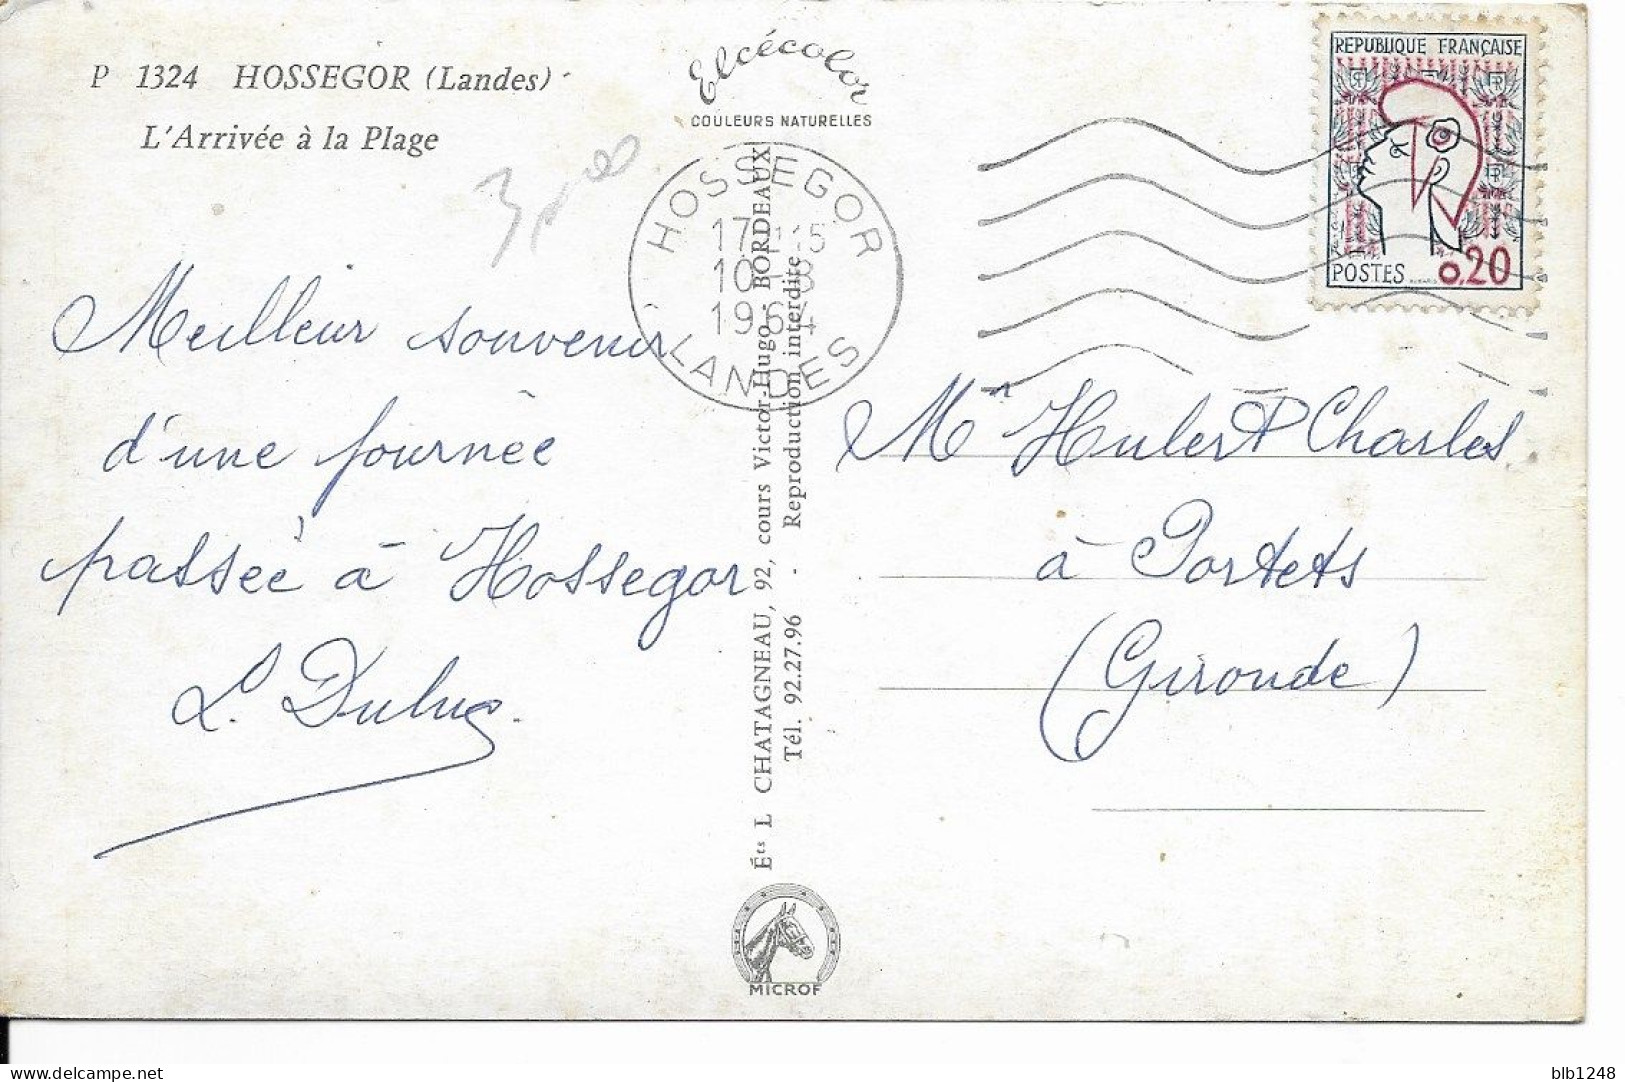 P 1324 HOSSEGOR (Landes)
L'Arrivée à la Plage
Elcécolor
COULEURS NATURELLES
HOSSEGOR
17H15
10-8
1964
LANDES
REPUBLIQUE FRANÇAISE
POSTES 0,20
Meilleur souvenir
d'une journée
passée à Hossegor
L. Dulue
Ets L CHATAGNEAU, 92, cours Victor-Hugo BORDEAUX
Tél. 92.27.96 - Reproduction interdite
MICROF
Mr Hubert Charles
à Portets
(Gironde)
blb1248